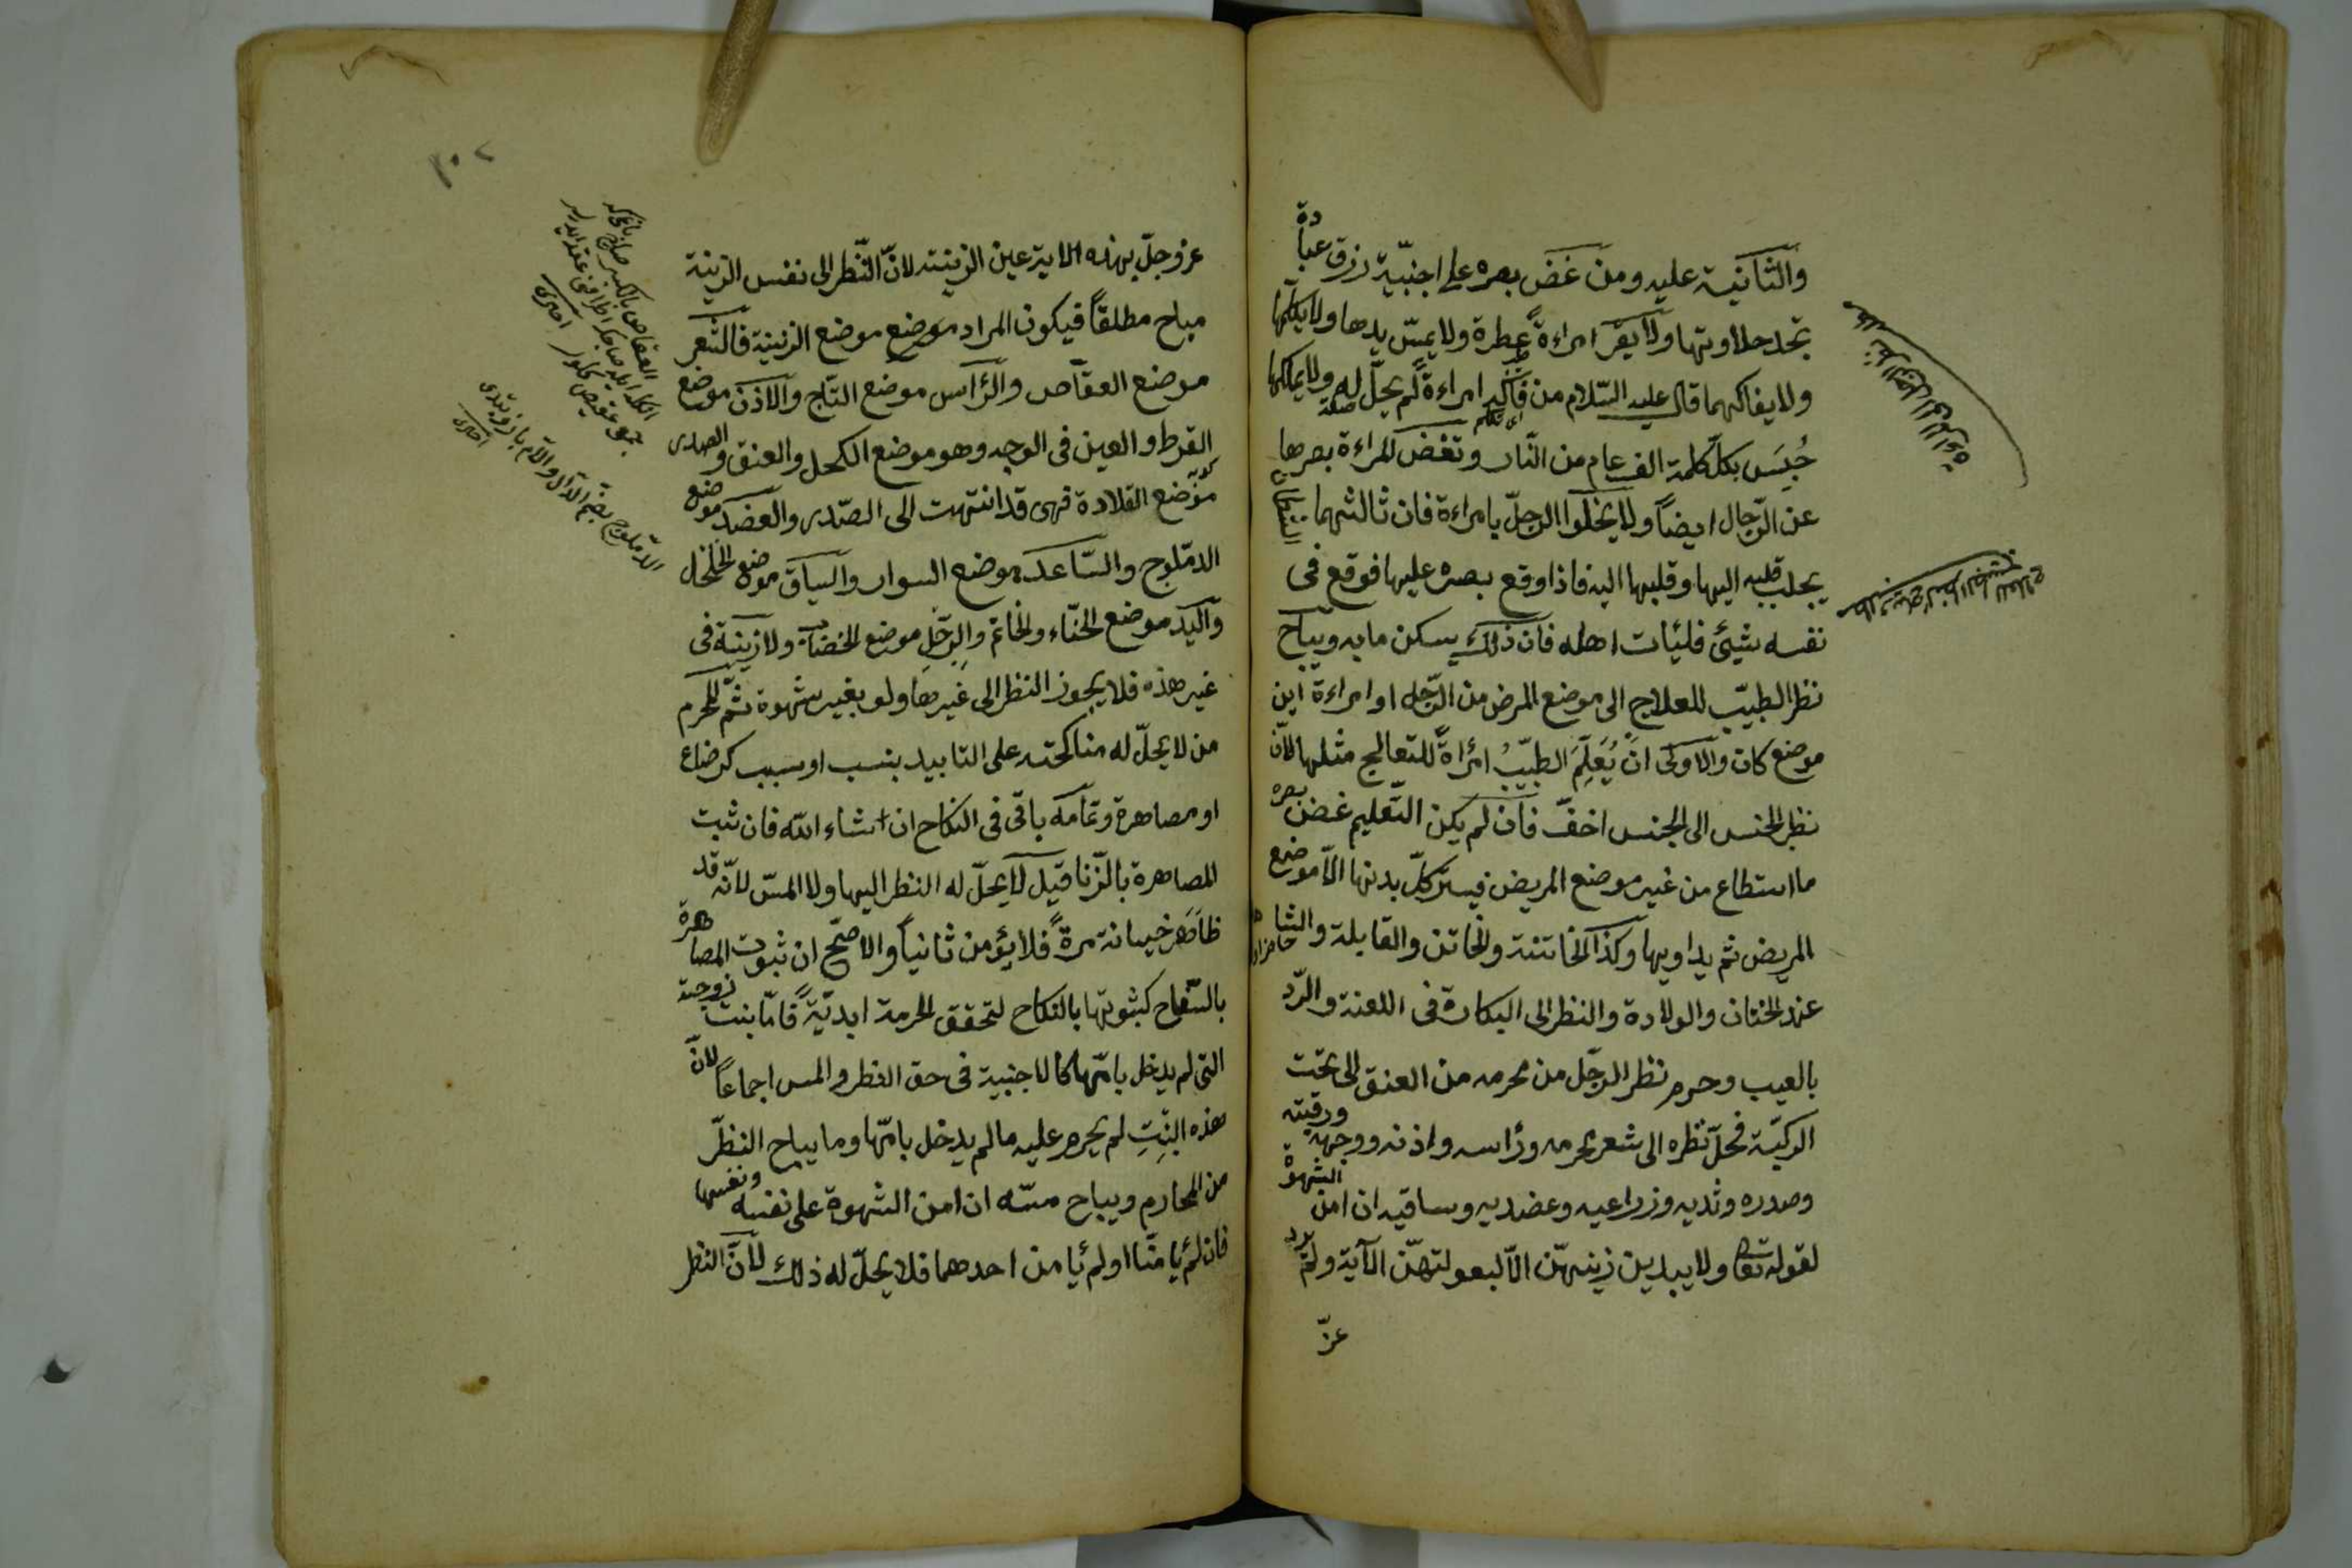 والثانية عليه ومن غض بصره على اجنبيّة رزق عبادة
تجد حلاوتها ولا يقر امراءةً عطرة ولا يمسّ يدها ولا يكلّمها
ولا يفاكهها قال عليه السّلام من فاكه امراءةً لم يحلّ له ولا يملكها
حُبِسَ بكلّ كلمة الف عام من النّار وتغض المراءة بصرها
عن الرّجال ايضاً ولا يخلوا الرجلّ بامراءة فان ثالثهما الشيطان
يجلب قلبه اليها وقلبها اليه فاذا وقع بصره عليها فوقع في
نفسه شيئ فليأت اهله فان ذلك يسكن ما به ويباح
نظر الطبيب للعلاج الى موضع المرض من الرّجل او امراءة اين
موضع كان والاولى ان يُعَلِّمَ الطبيبُ امرأةً للتعالج مثلها لانّ
نظر الجنس الى الجنس اخفّ فان لم يكن التّعليم غض بصره
ما استطاع من غير موضع المريض فيستر كلّ بدنها الاّ موضع
المريض ثم يداويها وكذا الخاتنة والخاتن والقابلة والشاهد
عند الختان والولادة والنظر الى البكارة في اللعنة والرّد
بالعيب وحرم نظر الرجّل من محرمه من العنق الى تحت
الركبّة فحلّ نظره الى شعر محرمه ورأسه واذنه ووجهه ورقبته
وصدره وثديه وزراعيه وعضديه وساقيه ان امن الشهوة
لقوله تعا ولا يبدين زينتهنّ الاّ لبعولتهنّ الآية ولم يرد
عزّ
عز وجلّ بهذه الاية عين الزينة لانّ النّظر الى نفس الزينة
مباح مطلقاً فيكون المراد موضع موضع الزينة فالشعر
موضع العقاص والرّأس موضع التاج والاذن موضع
القرط والعين في الوجه وهو موضع الكحل والعنق والصدر
موضع القلادة فهي قد انتهت الى الصّدر والعضد موضع
الدملوج والسّاعد موضع السوار والساق موضع الخلخال
واليد موضع الحنّاء والخاتم والرّجل موضع الخضاب ولا زينة في
غير هذه فلا يجوز النظر الى غيرها ولو بغير شهوة ثمّ المحرم
من لا يحلّ له مناكحته على التابيد بنسب او سبب كرضاع
او مصاهرة وتمامه باقى فى النكاح ان شاء الله فان ثبت
المصاهرة بالزّنا قيل لا يحلّ له النظر اليها ولا المسّ لانّه قد
ظَاهَر خيانة مرةً فلا يؤمن ثانياً والاصّح ان ثبوت المصاهرة
بالسّفاح كثبوتها بالنكاح لتحقق الحرمة ابديّةً فامّا بنت زوجته
التى لم يدخل بامّها كالاجنبية فى حق النظر والمس اجماعاً لانّ
هذه البنتِ لم يحرم عليه ما لم يدخل بامّها وما يباح النظرّ
من المحارم ويباح مسّه ان امن الشهوة على نفسه ونفسها
فان لم يامنا او لم يامن احدهما فلا يحلّ له ذلك لانّ النظر
العقاص بالكسر
الدّملوج بضم الدّال واللّام بازوبندى
اخترى